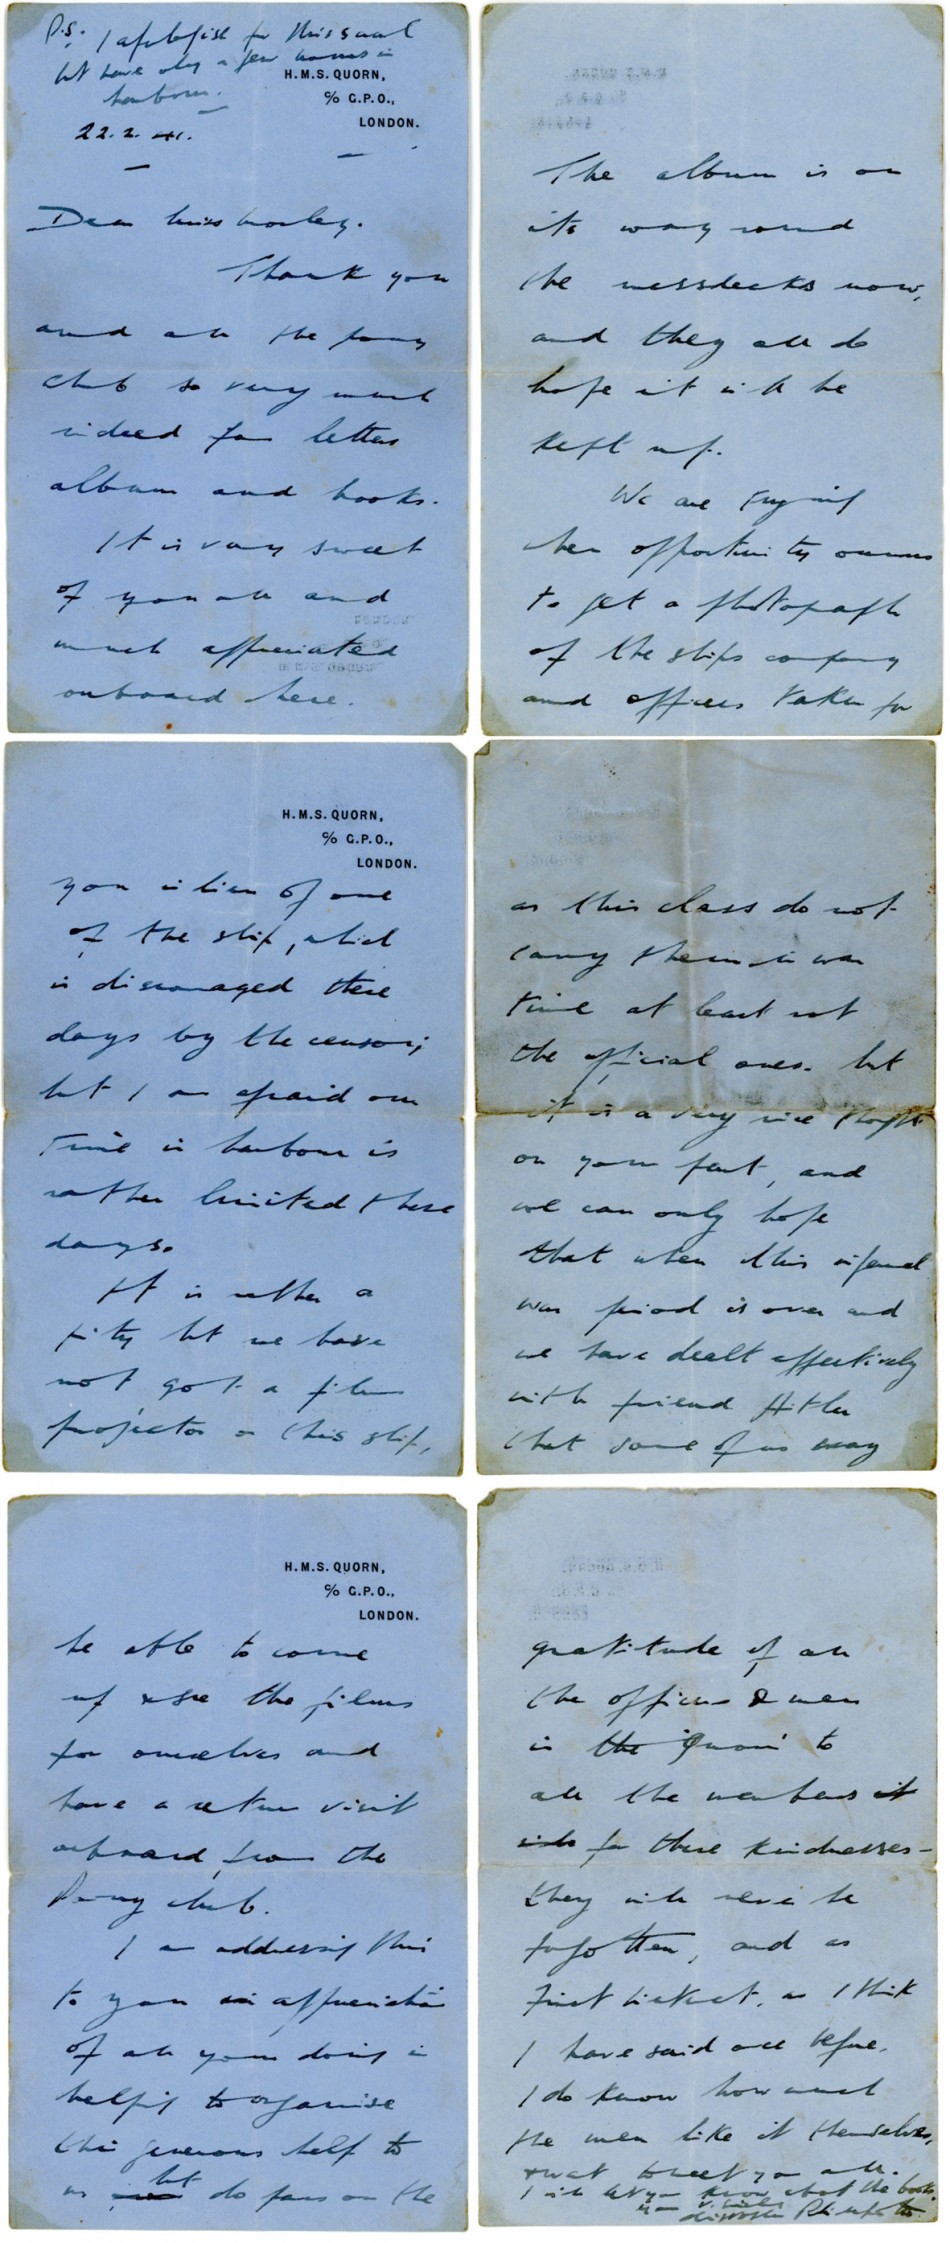 P.S. I apologise for this scrawl
but have only a few hours in
harbour.
H.M.S. QUORN,
℅ G.P.O.,
LONDON.
22.2.41.
Dear Miss Morley.
Thank you
and all the pony
club so very much
indeed for letters
album and books.
It is very sweet
of you all and
much appreciated
onboard here.
The album is on
its way round
the messdecks now,
and they all do
hope it will be
kept up.
We are trying
when opportunity occurs
to get a photograph
of the ships company
and officers taken for
H.M.S. QUORN,
℅ G.P.O.,
LONDON.
you in lieu of one
of the ship, which
is discouraged these
days by the censor;
but I am afraid our
time in harbour is
rather limited these
days.
It is rather a
pity but we have
not got a film
projector in this ship,
as this class do not
carry them in war
time at least not
the official ones. but
it is a very nice thought
on your part, and
we can only hope
that when this infernal
war period is over and
we have dealt effectively
with friend Hitler
that some of us may
H.M.S. QUORN,
℅ G.P.O.,
LONDON.
be able to come
up & see the films
for ourselves and
have a return visit
onboard from the
Pony club.
I am addressing this
to you in appreciation
of all your doing in
helping to organise
this generous help to
us but do pass on the
gratitude of all
the officers & men
in the 'Quorn' to
all the members it
for these kindnesses-
they will never be
forgotten, and as
First Lieutenant, as I think
I have said once before,
I do know how much
the men like it themselves,
& want to meet you all.
I will let you know about the books
your